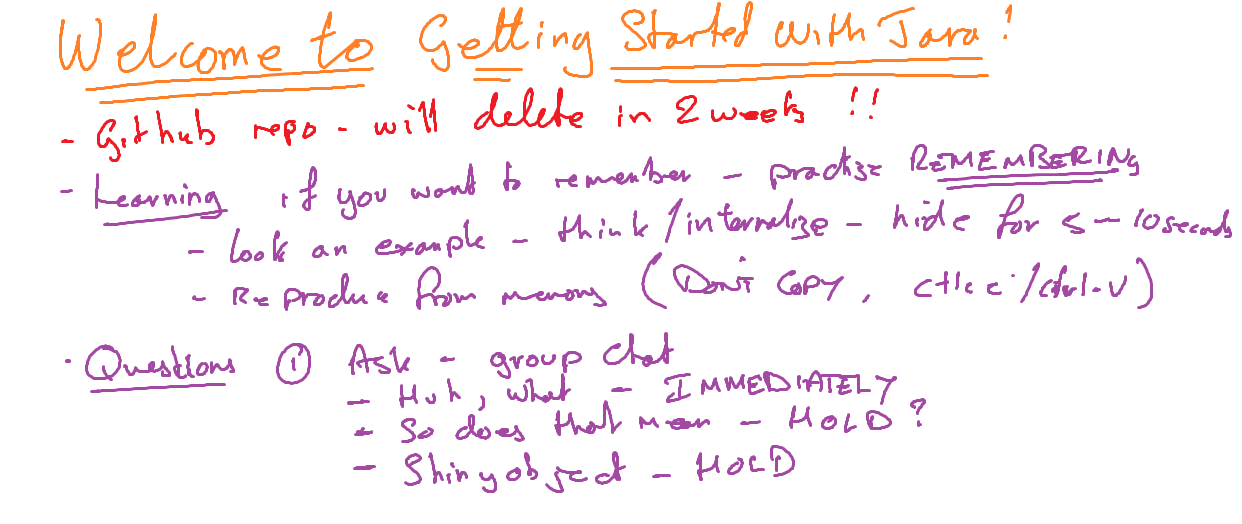 Welcome to Getting Started with Java!
- Github repo - will delete in 2 weeks !!
- Learning if you want to remember - practise REMEMBERING
- Look an example - think / internalize - hide for 5 - 10 seconds
- Reproduce from memory (Don't Copy, ctrl-c / ctrl-v)
- Questions ① Ask - group chat
- Huh, what - IMMEDIATELY
- So does that mean - HOLD?
- Shiny object - HOLD